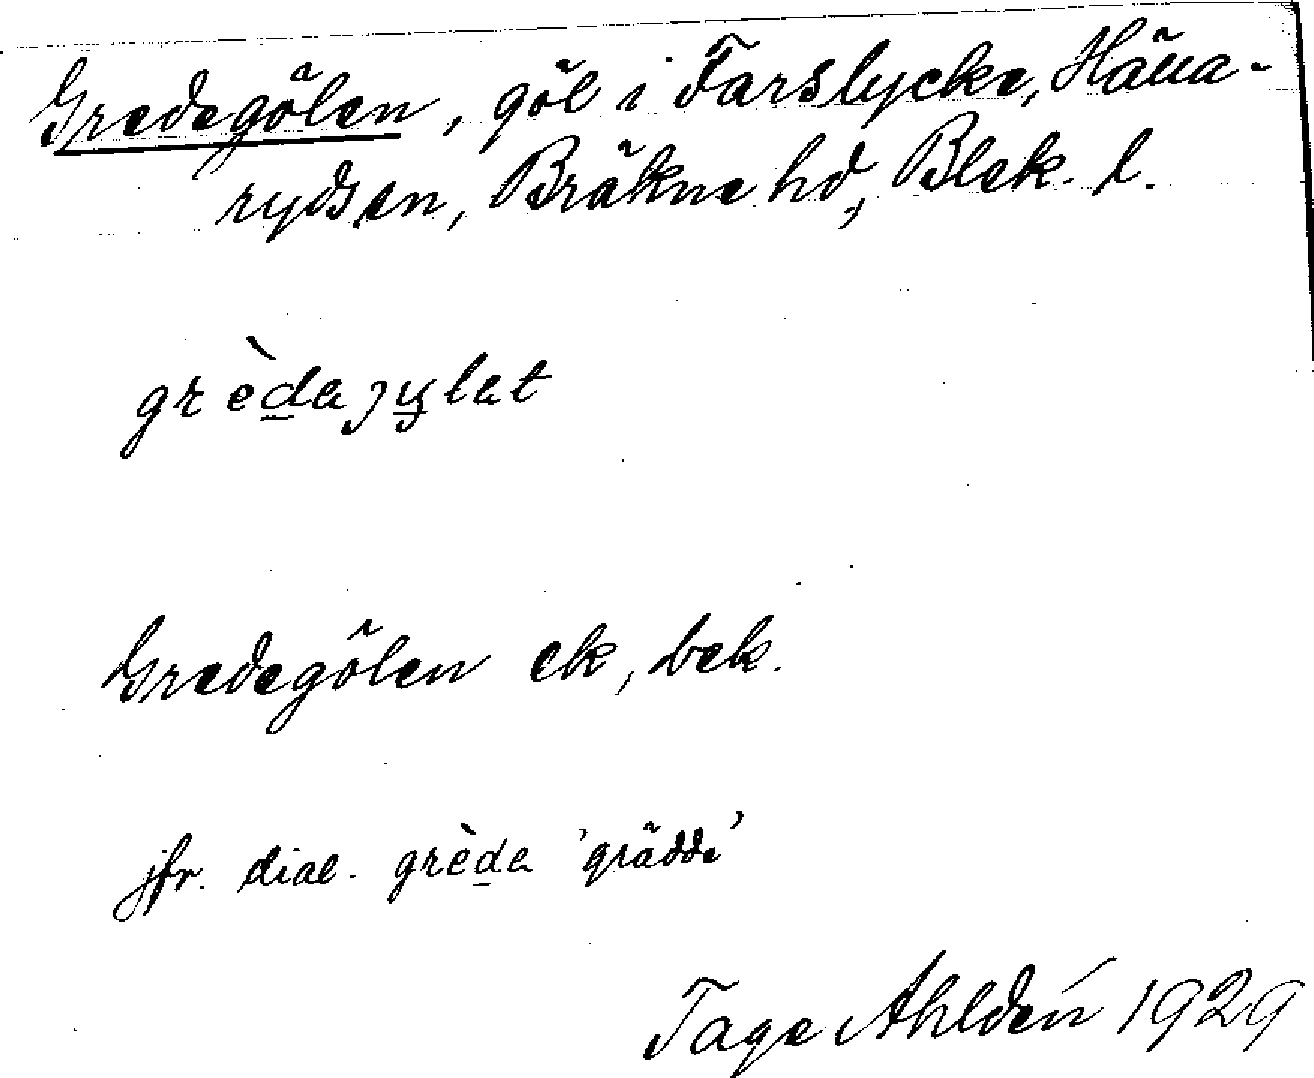 Gredegölen, göl i Farslycke, Hälla-
rydsen, Bräkne hd, Blek. l.
grèdaȷylɛt
Gredegölen ek, bek.
jfr. dial. grèda 'grädde'
Tage Ahldén 1929